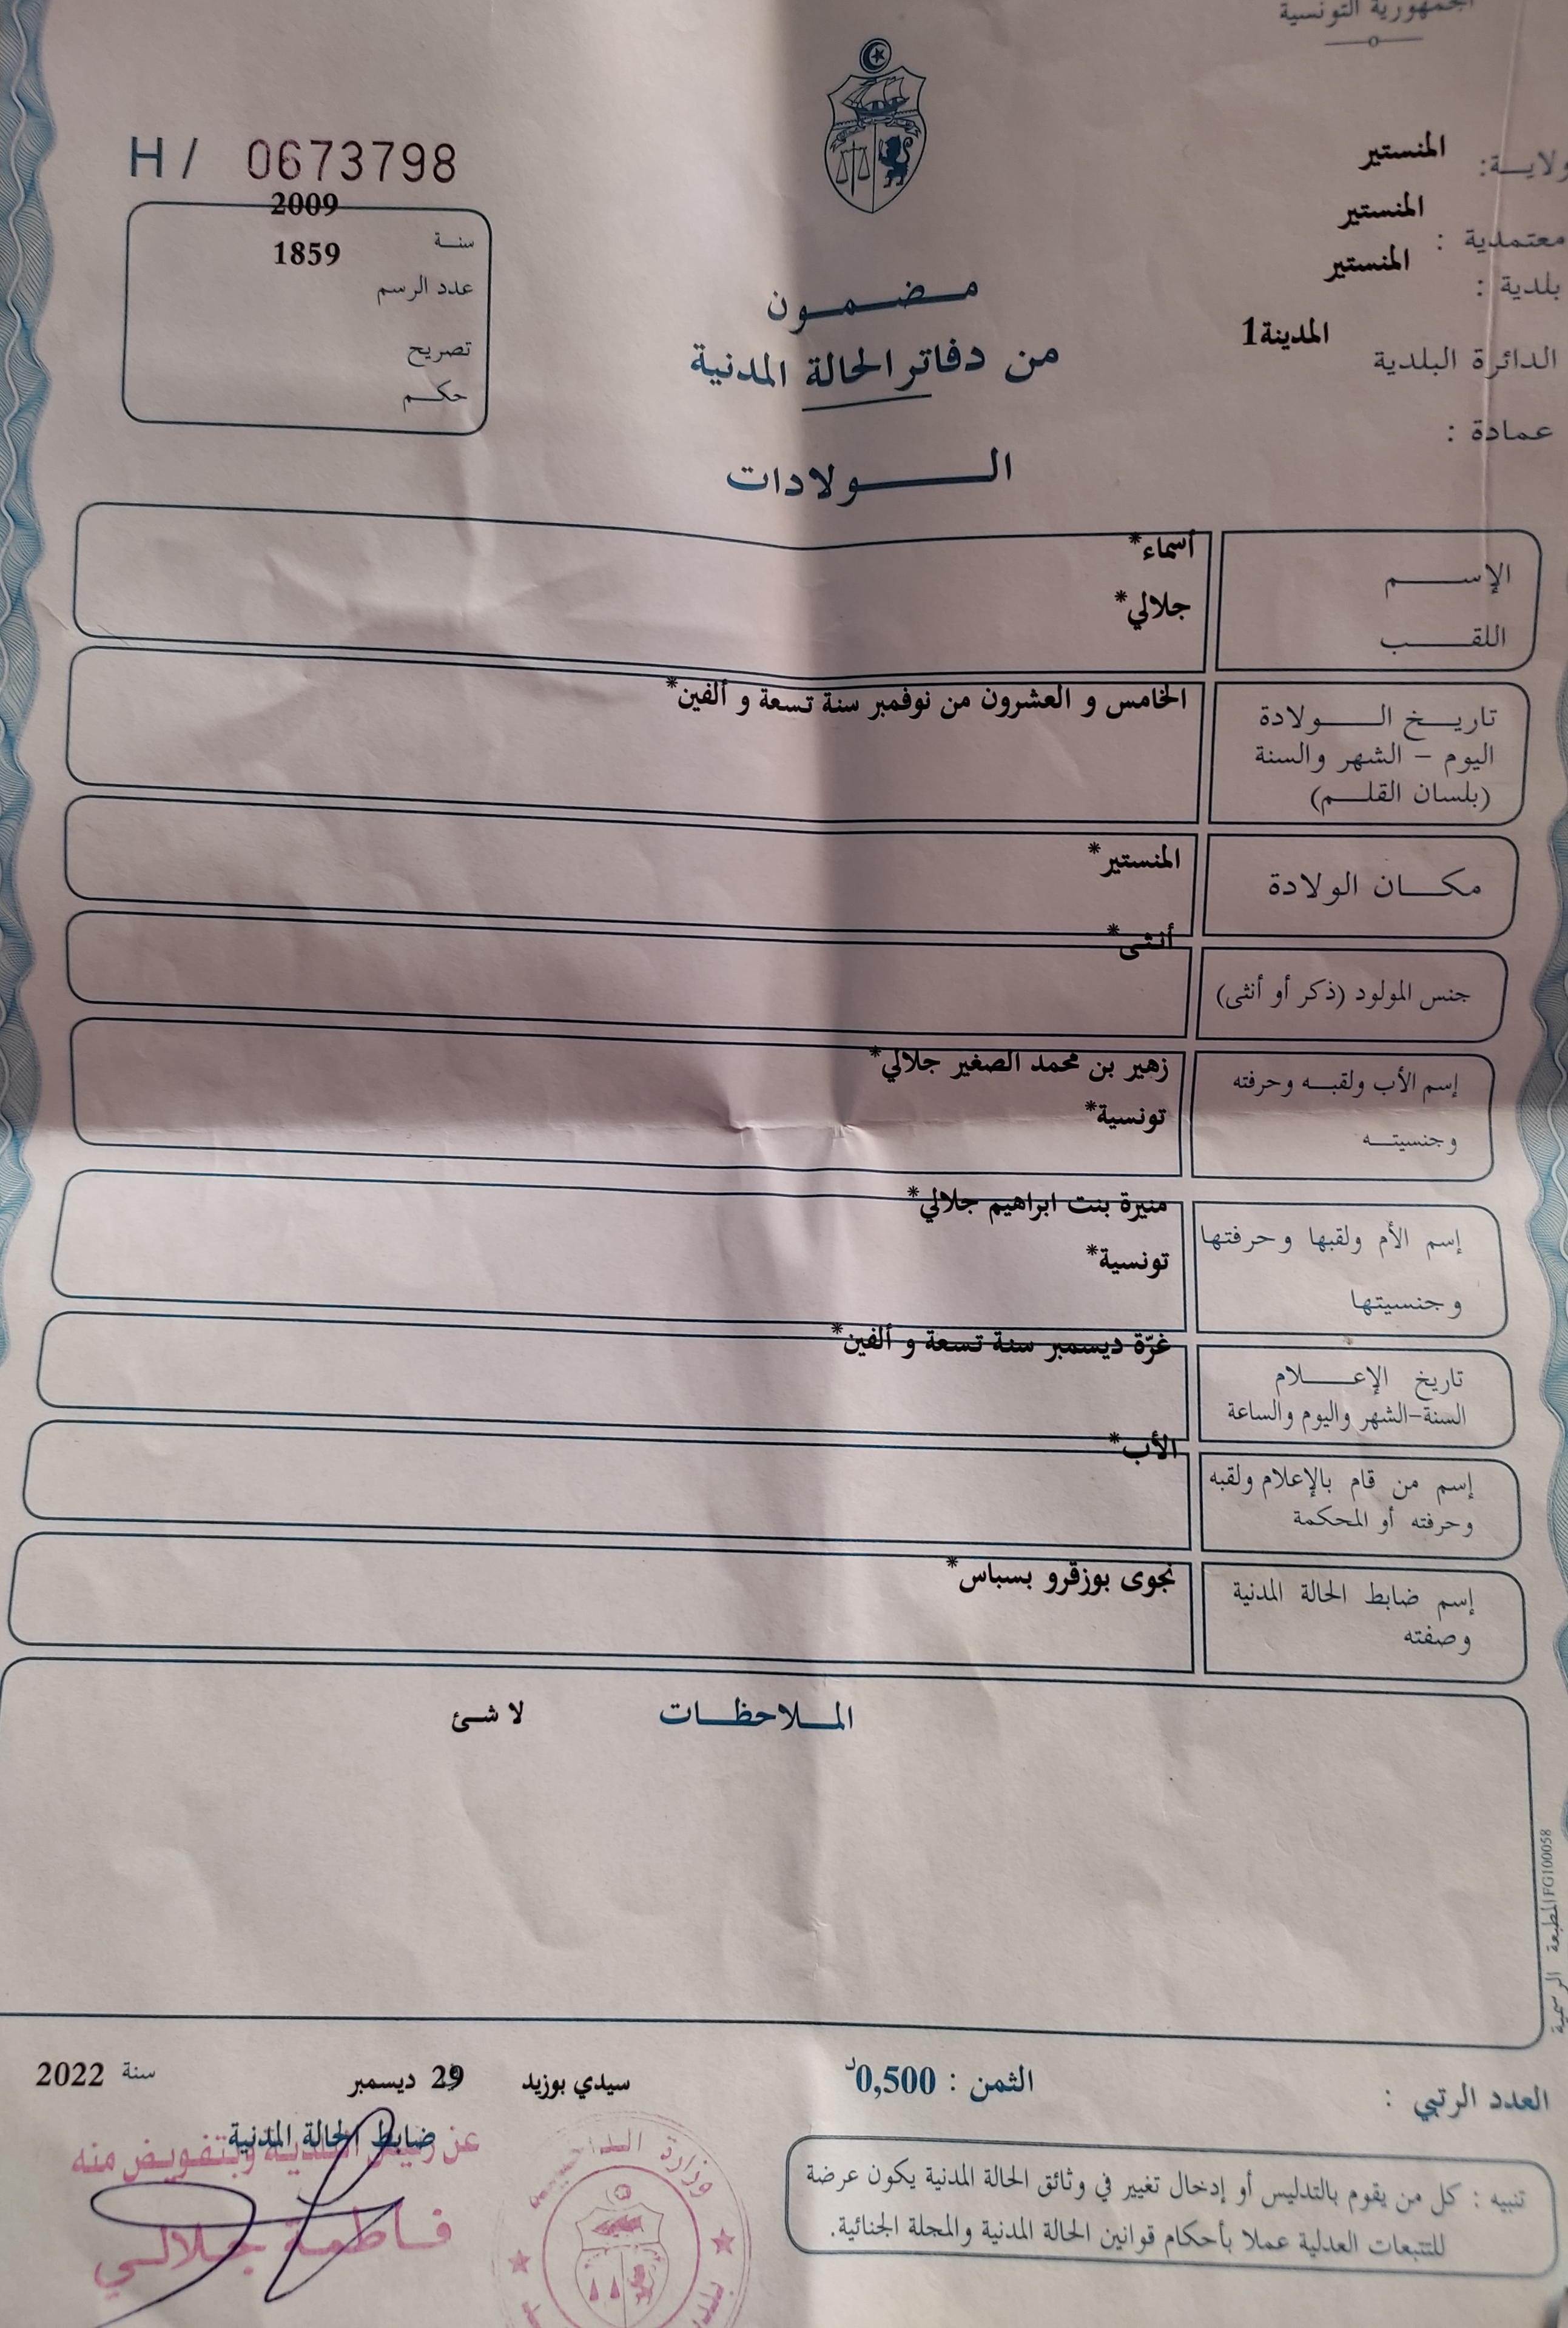 الجمهورية التونسية
H / 0673798
ولايـة: المنستير
معتمدية : المنستير
بلدية : المنستير
الدائرة البلدية المدينة1
عمادة :
سنة 2009
عدد الرسم 1859
تصريح
حكم
مضمون
من دفاتر الحالة المدنية
الولادات
الإسم أسماء*
اللقب جلالي*
تاريخ الولادة الخامس و العشرون من نوفمبر سنة تسعة و ألفين*
اليوم – الشهر والسنة
(بلسان القلم)
مكان الولادة المنستير*
جنس المولود (ذكر أو أنثى) أنثى*
إسم الأب ولقبه وحرفته زهير بن محمد الصغير جلالي*
وجنسيته تونسية*
إسم الأم ولقبها وحرفتها منيرة بنت ابراهيم جلالي*
وجنسيتها تونسية*
تاريخ الإعلام غرّة ديسمبر سنة تسعة و ألفين*
السنة-الشهر واليوم والساعة
إسم من قام بالإعلام ولقبه الأب*
وحرفته أو المحكمة
إسم ضابط الحالة المدنية نجوى بوزقرو بسباس*
وصفته
الملاحظات لا شئ
المطبعة الرسمية FG100058
العدد الرتبي :
الثمن : 0,500د
سيدي بوزيد 29 ديسمبر سنة 2022
ضابط الحالة المدنية
عن رئيس البلدية وبتفويض منه
فاطمة جلالي
وزارة الداخلية
تنبيه : كل من يقوم بالتدليس أو إدخال تغيير في وثائق الحالة المدنية يكون عرضة
للتتبعات العدلية عملا بأحكام قوانين الحالة المدنية والمجلة الجنائية.